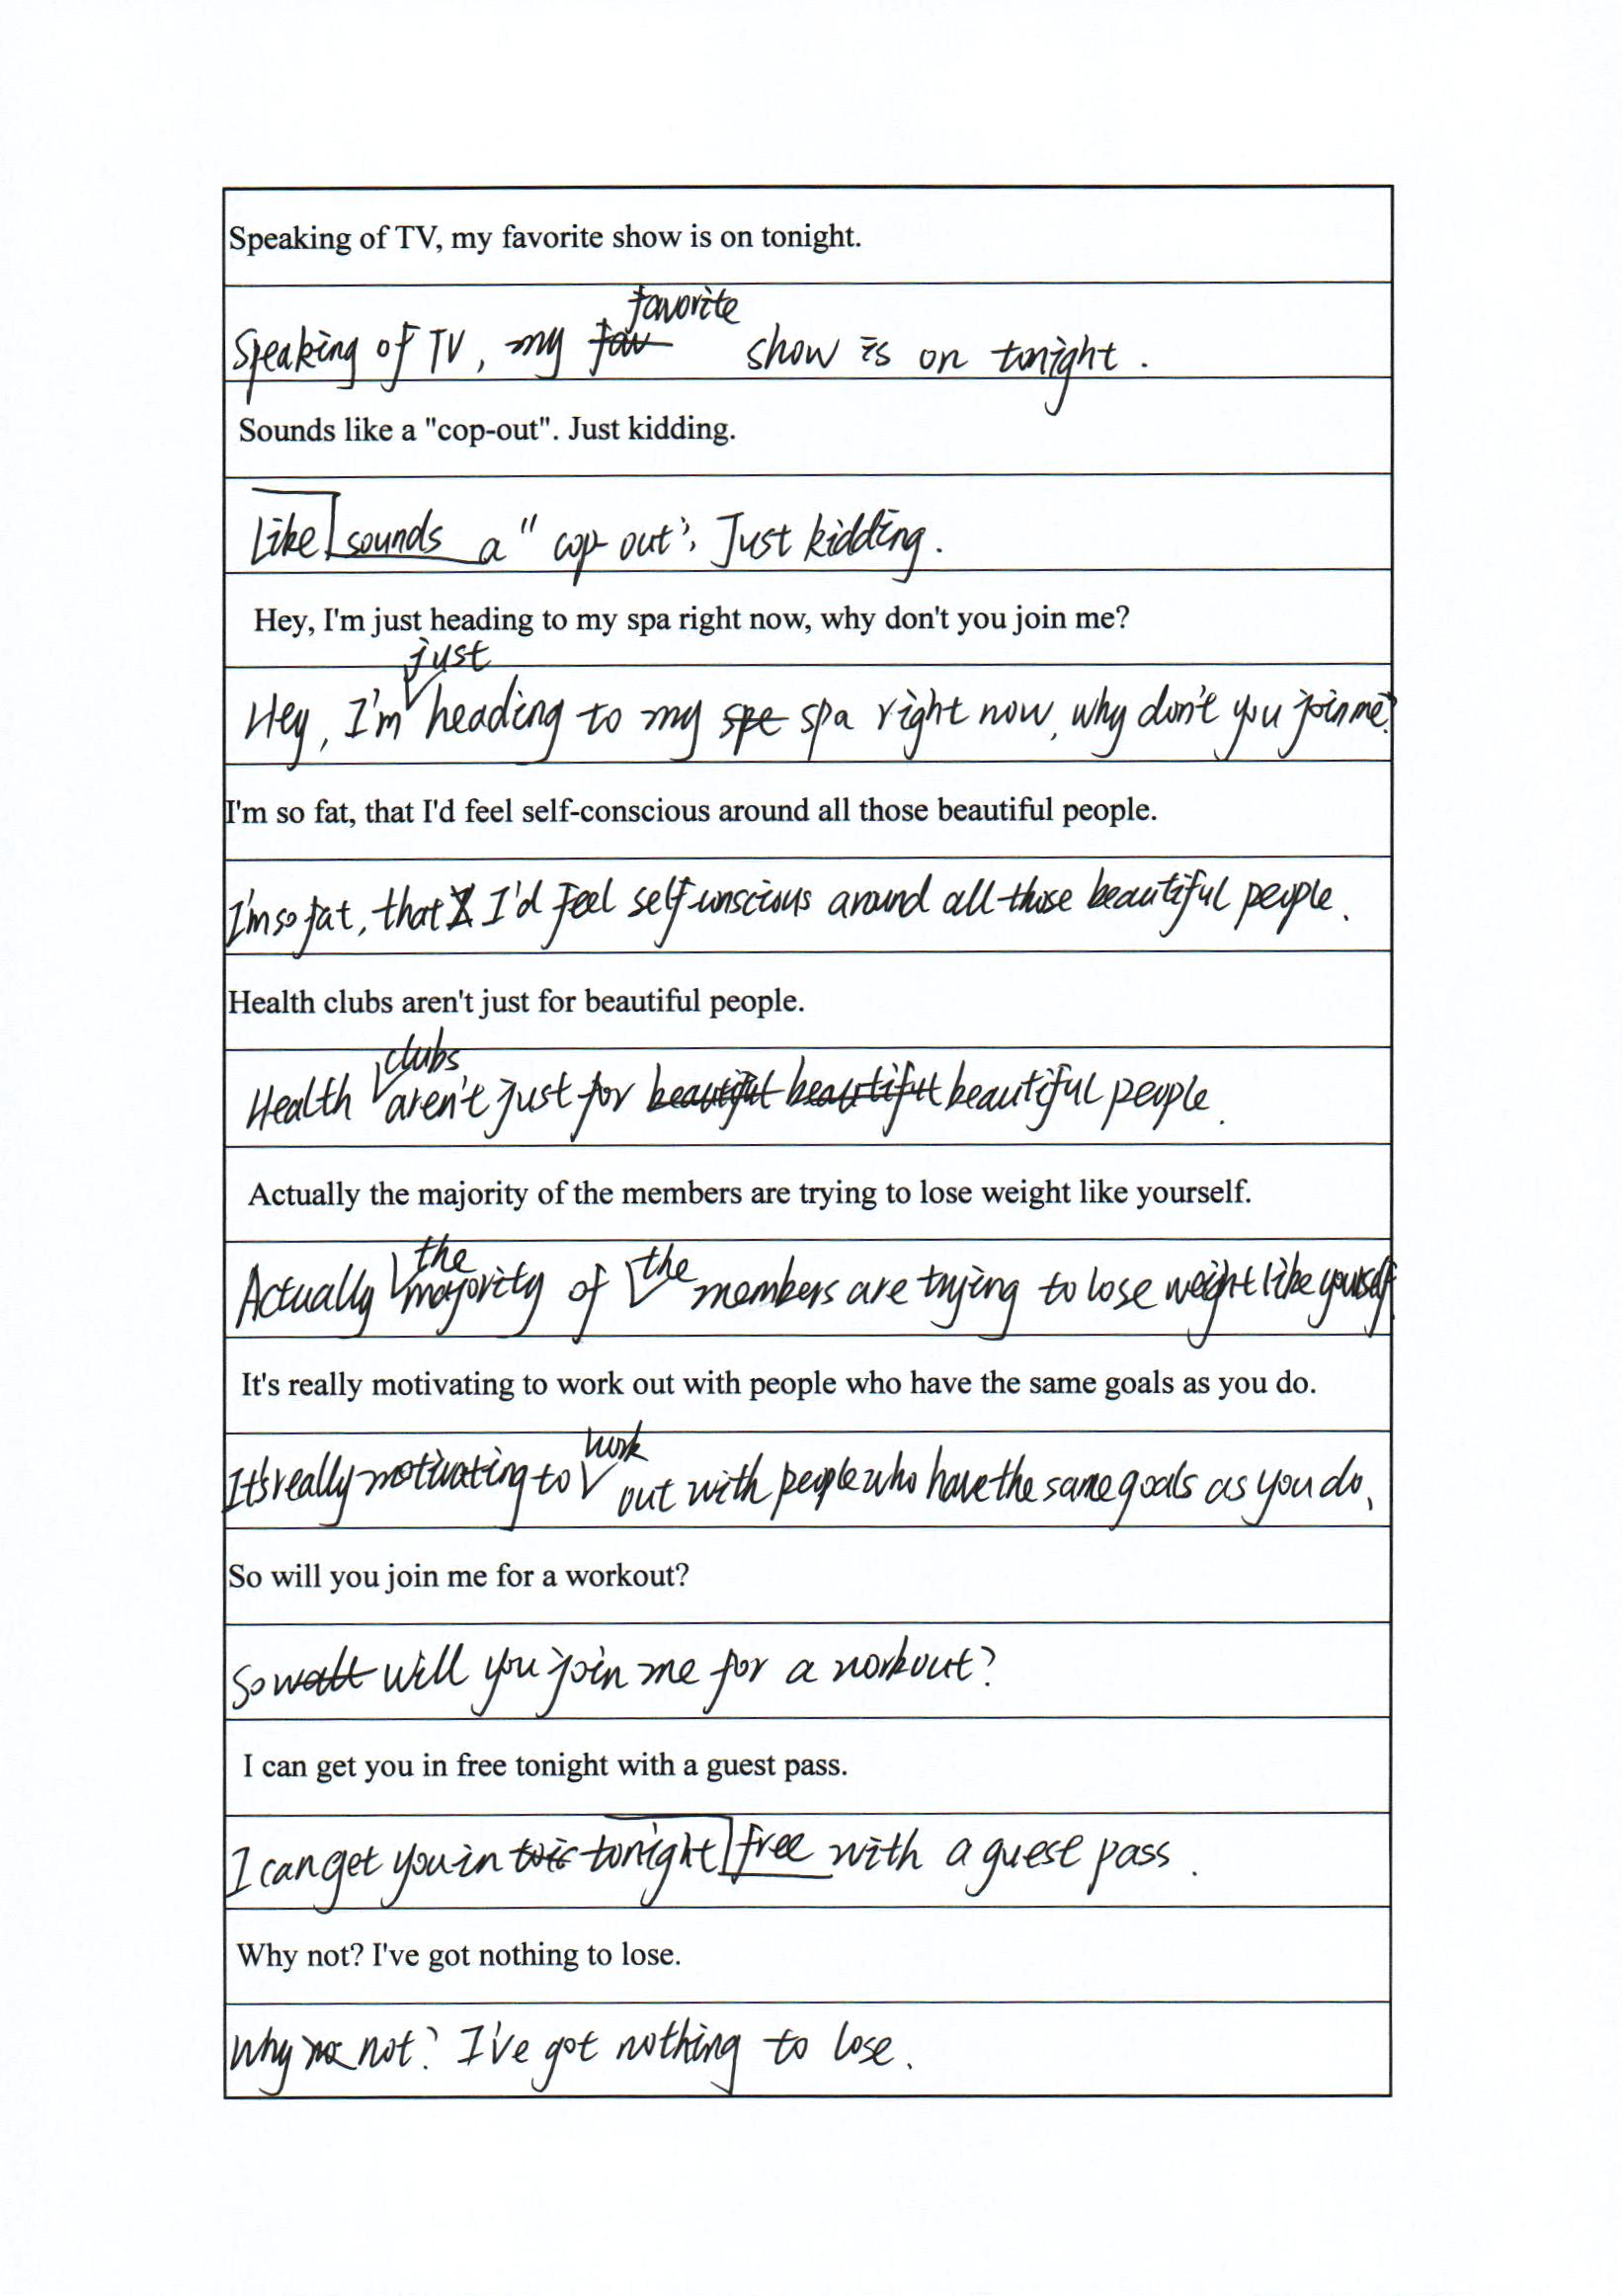 Speaking of TV, my favorite show is on tonight.
Speaking of TV, my favorite show is on tonight.
Sounds like a "cop-out". Just kidding.
sounds Like a "cop-out". Just kidding.
Hey, I'm just heading to my spa right now, why don't you join me?
Hey, I'm just heading to my spa right now, why don't you join me?
I'm so fat, that I'd feel self-conscious around all those beautiful people.
I'm so fat, that I'd feel self-conscious around all those beautiful people.
Health clubs aren't just for beautiful people.
Health clubs aren't just for beautiful people.
Actually the majority of the members are trying to lose weight like yourself.
Actually the majority of the members are trying to lose weight like yourself.
It's really motivating to work out with people who have the same goals as you do.
It's really motivating to work out with people who have the same goals as you do.
So will you join me for a workout?
So will you join me for a workout?
I can get you in free tonight with a guest pass.
I can get you in free tonight with a guest pass.
Why not? I've got nothing to lose.
Why not? I've got nothing to lose.